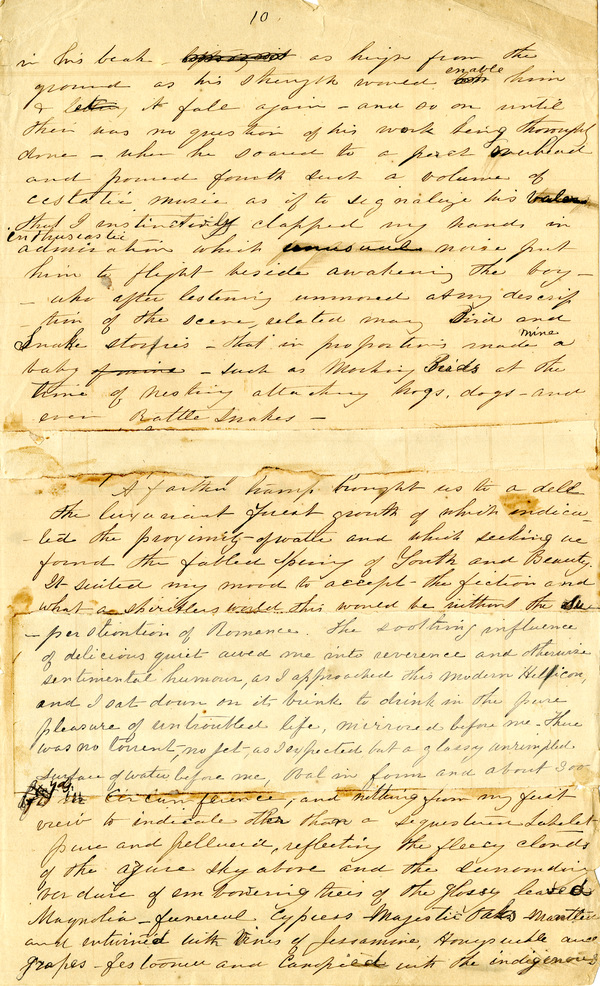 10
in his beak - as high from the
ground as his strength would enable him
& let it fall again - and so on until
there was no question of his work being thoroughly
done - when he soared to a perch overhead
and poured fourth such a volume of
ecstatic music as if to signalize his valor
that I instinctively clapped my hands in
enthusiastic
admiration which unusual noise put
him to flight - beside awakening the boy -
- who after listening unmoved at my descrip
-tion of the scene, related many Bird and
Snake stories - that in proportions made mine a
baby of mine - such as Mocking Birds at the
time of nesting attacking hogs, dogs - and
even Rattle Snakes -
A farther tramp brought us to a dell
the luxuriant forest growth of which indica-
-ted the proximity of water and which seeking we
found the fabled Spring of Youth and Beauty.
It suited my mood to accept the fiction and
what a spiritless world this would be without the su
-perstiontion of Romance. The soothing influence
of delicious quiet awed me into reverence and otherwise
sentimental humour, as I approached this modern Hellicon,
and I sat down on its brink to drink in the pure
pleasure of untroubled life, mirrored before me - There
was no torrent, no jet, as I expected but a glassy unrimpled
surface of water before me, Oval in form and about 300
in circumference, and nothing from my first
view to indicate other than a sequestered Lakelet
pure and pellucid, reflecting the fleecy clouds
of the azure sky above and the surrounding
verdure of embowering trees of the Glossy leaved
Magnolia - funereal Cypress - Majestic Oaks - Mantled
and enturned with Vines of Jessamine, Honysuckle and
grapes - festooned and Canopied with the indigenous